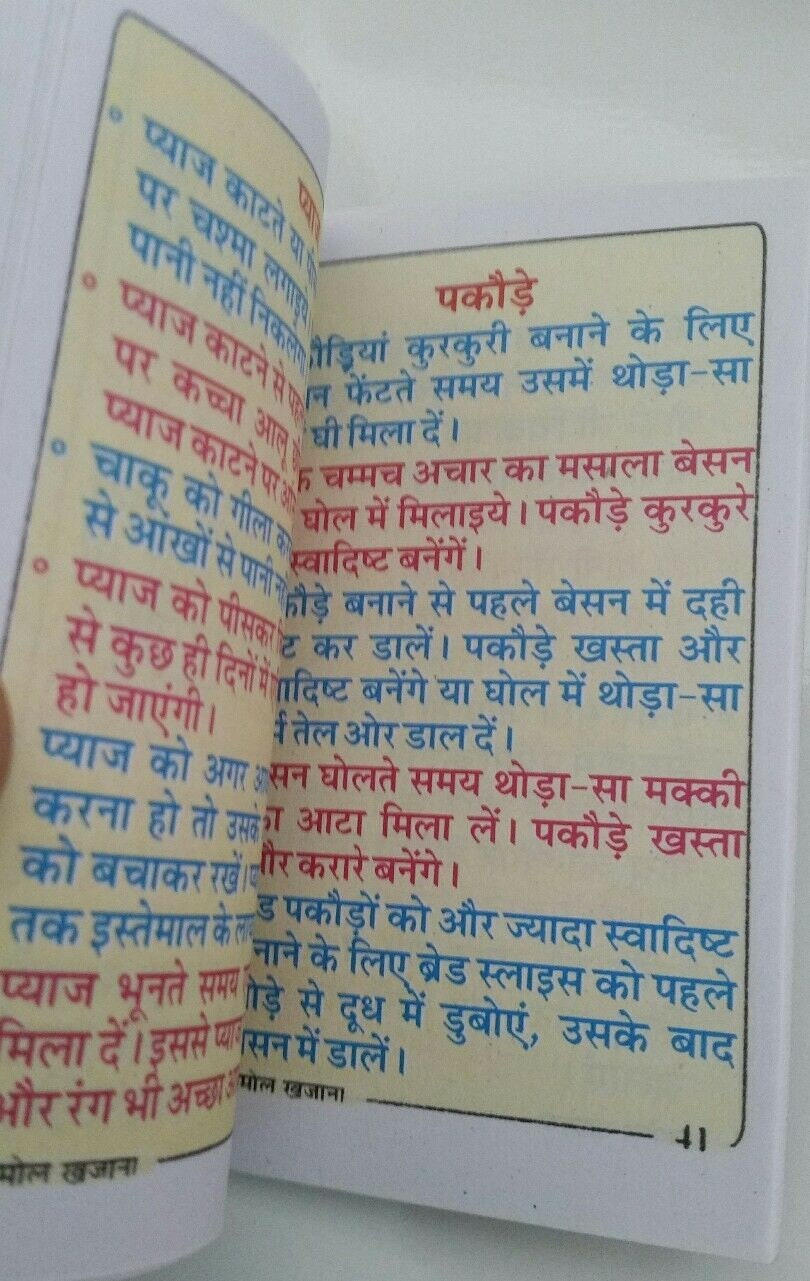 प्याज काटते या
पर चश्मा लगाइये
पानी नहीं निकलेगा
प्याज काटने से पहले
पर कच्चा आलू
प्याज काटने पर
चाकू को गीला
से आंखों से पानी
प्याज को पीसकर
से कुछ ही दिनों में
हो जाएंगी।
प्याज को अगर
करना हो तो उसके
को बचाकर रखें।
तक इस्तेमाल के
प्याज भूनते समय
मिला दें। इससे
और रंग भी अच्छा
मोल खजाना
पकौड़े
कुरकुरी बनाने के लिए
फेंटते समय उसमें थोड़ा-सा
घी मिला दें।
चम्मच अचार का मसाला बेसन
घोल में मिलाइये। पकौड़े कुरकुरे
स्वादिष्ट बनेंगें।
बनाने से पहले बेसन में दही
कर डालें। पकौड़े खस्ता और
बनेंगे या घोल में थोड़ा-सा
तेल ओर डाल दें।
घोलते समय थोड़ा-सा मक्की
आटा मिला लें। पकौड़े खस्ता
और करारे बनेंगे।
पकौड़ों को और ज्यादा स्वादिष्ट
के लिए ब्रेड स्लाइस को पहले
से दूध में डुबोएं, उसके बाद
में डालें।
मोल खजाना
41